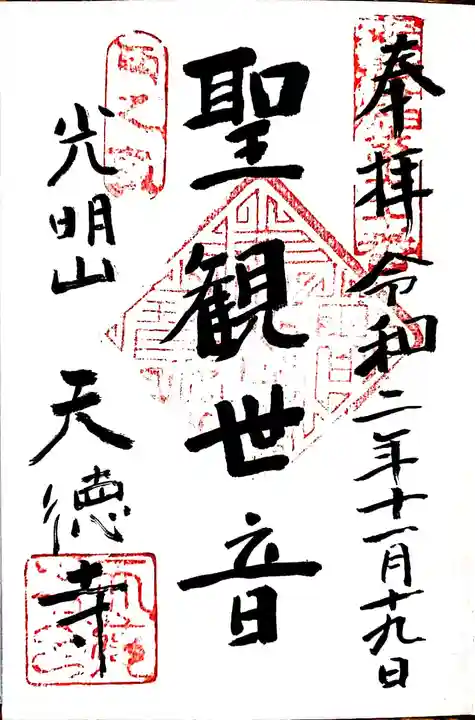 奉拝令和二年十一月十九日
聖観世音
光明山 天徳寺